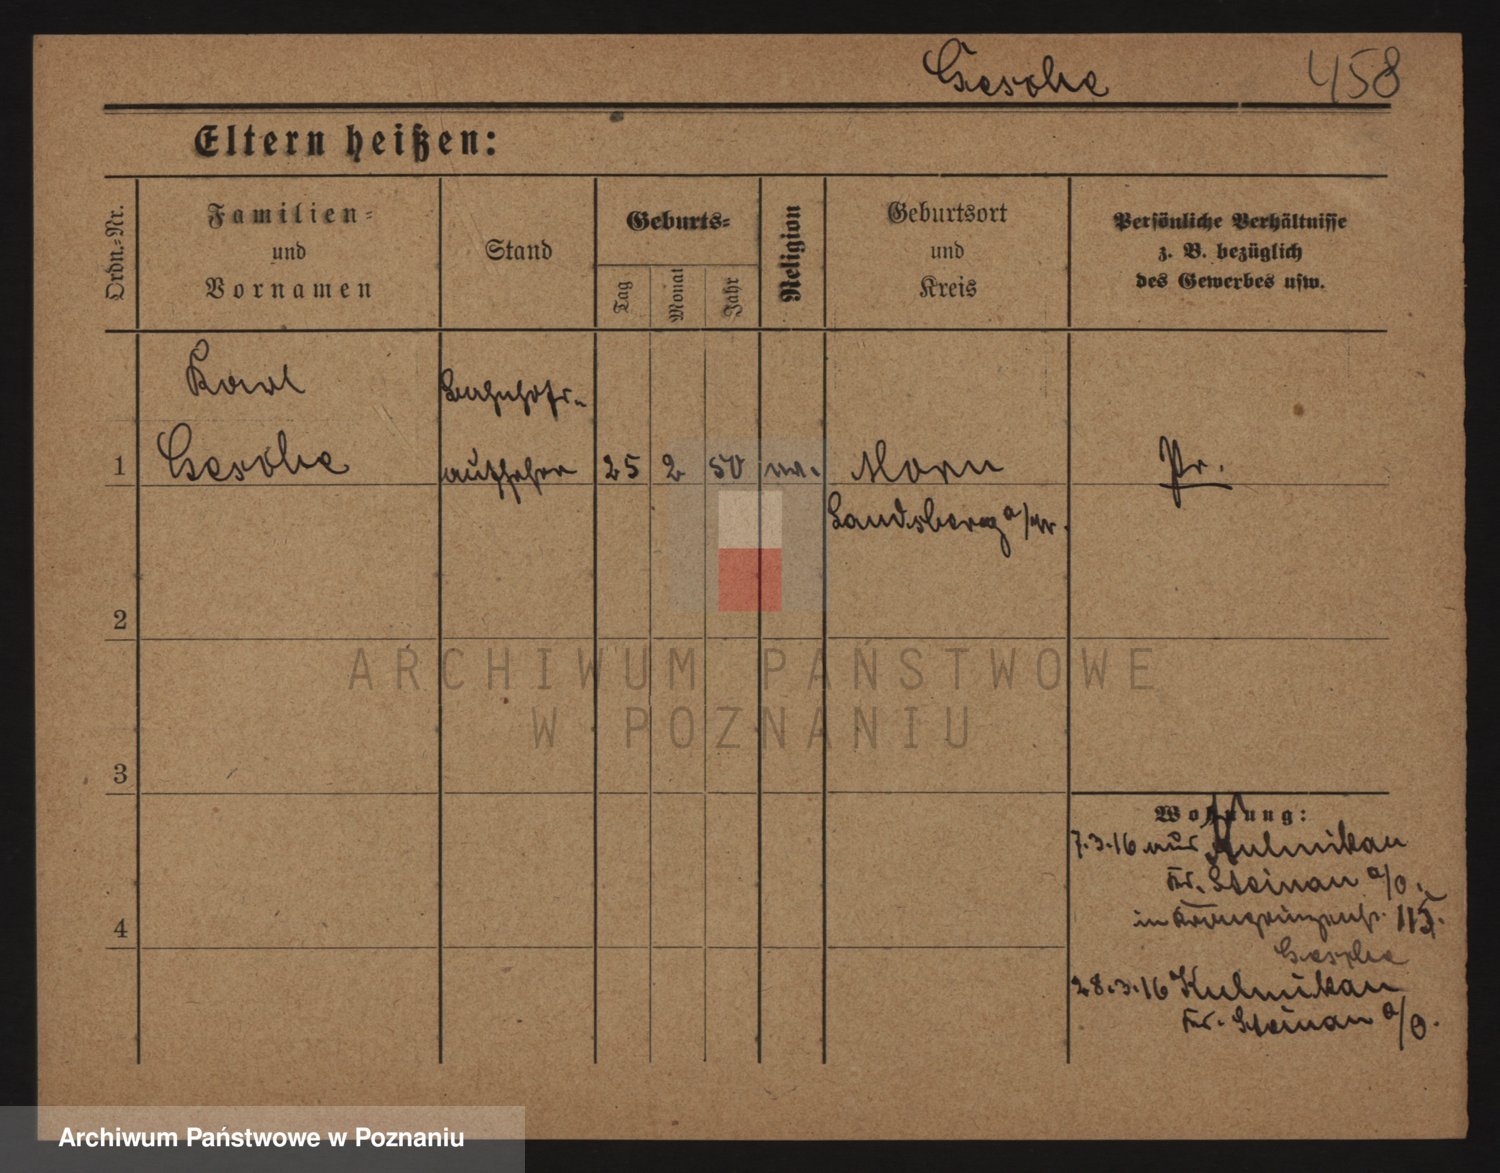 Geschke 458
Eltern heißen:
Ordn.-Nr.
Familien-
und
Vornamen
Stand
Geburts-
Tag
Monat
Jahr
Religion
Geburtsort
und
Kreis
Persönliche Verhältnisse
z. B. bezüglich
des Gewerbes usw.
Karl
Bahnhofs-
1 Geschke aufseher 25 2 50 ev. Morrn Pr.
Landsberg a/W.
2
ARCHIWUM PAŃSTWOWE
W POZNANIU
3
Wohnung:
7.3.16 aus Kulmikau
Kr. Steinau a/O.
in Kronprinzenstr. 115.
Geschke
4
28.3.16 Kulmikau
Kr. Steinau a/O.
Archiwum Państwowe w Poznaniu